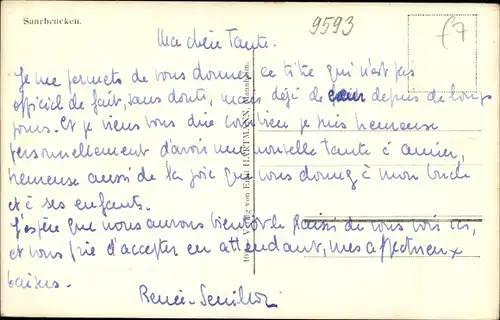 Saarbrücken.
9593
f7
Ma chère Tante.
Je me permets de vous donner ce titre qui n'est pas
officiel de fait, sans doute, mais déjà de cœur depuis de longs
jours. Et je viens vous dire combien je suis heureuse
personnellement d'avoir une nouvelle tante à aimer,
heureuse aussi de la joie que vous donnez à mon oncle
et à ses enfants.
J'espère que nous aurons bientôt le plaisir de vous voir ici,
et vous prie d'accepter en attendant, mes affectueux
baisers.
Renée
Verlag von Emil HARTMANN, Mannheim.